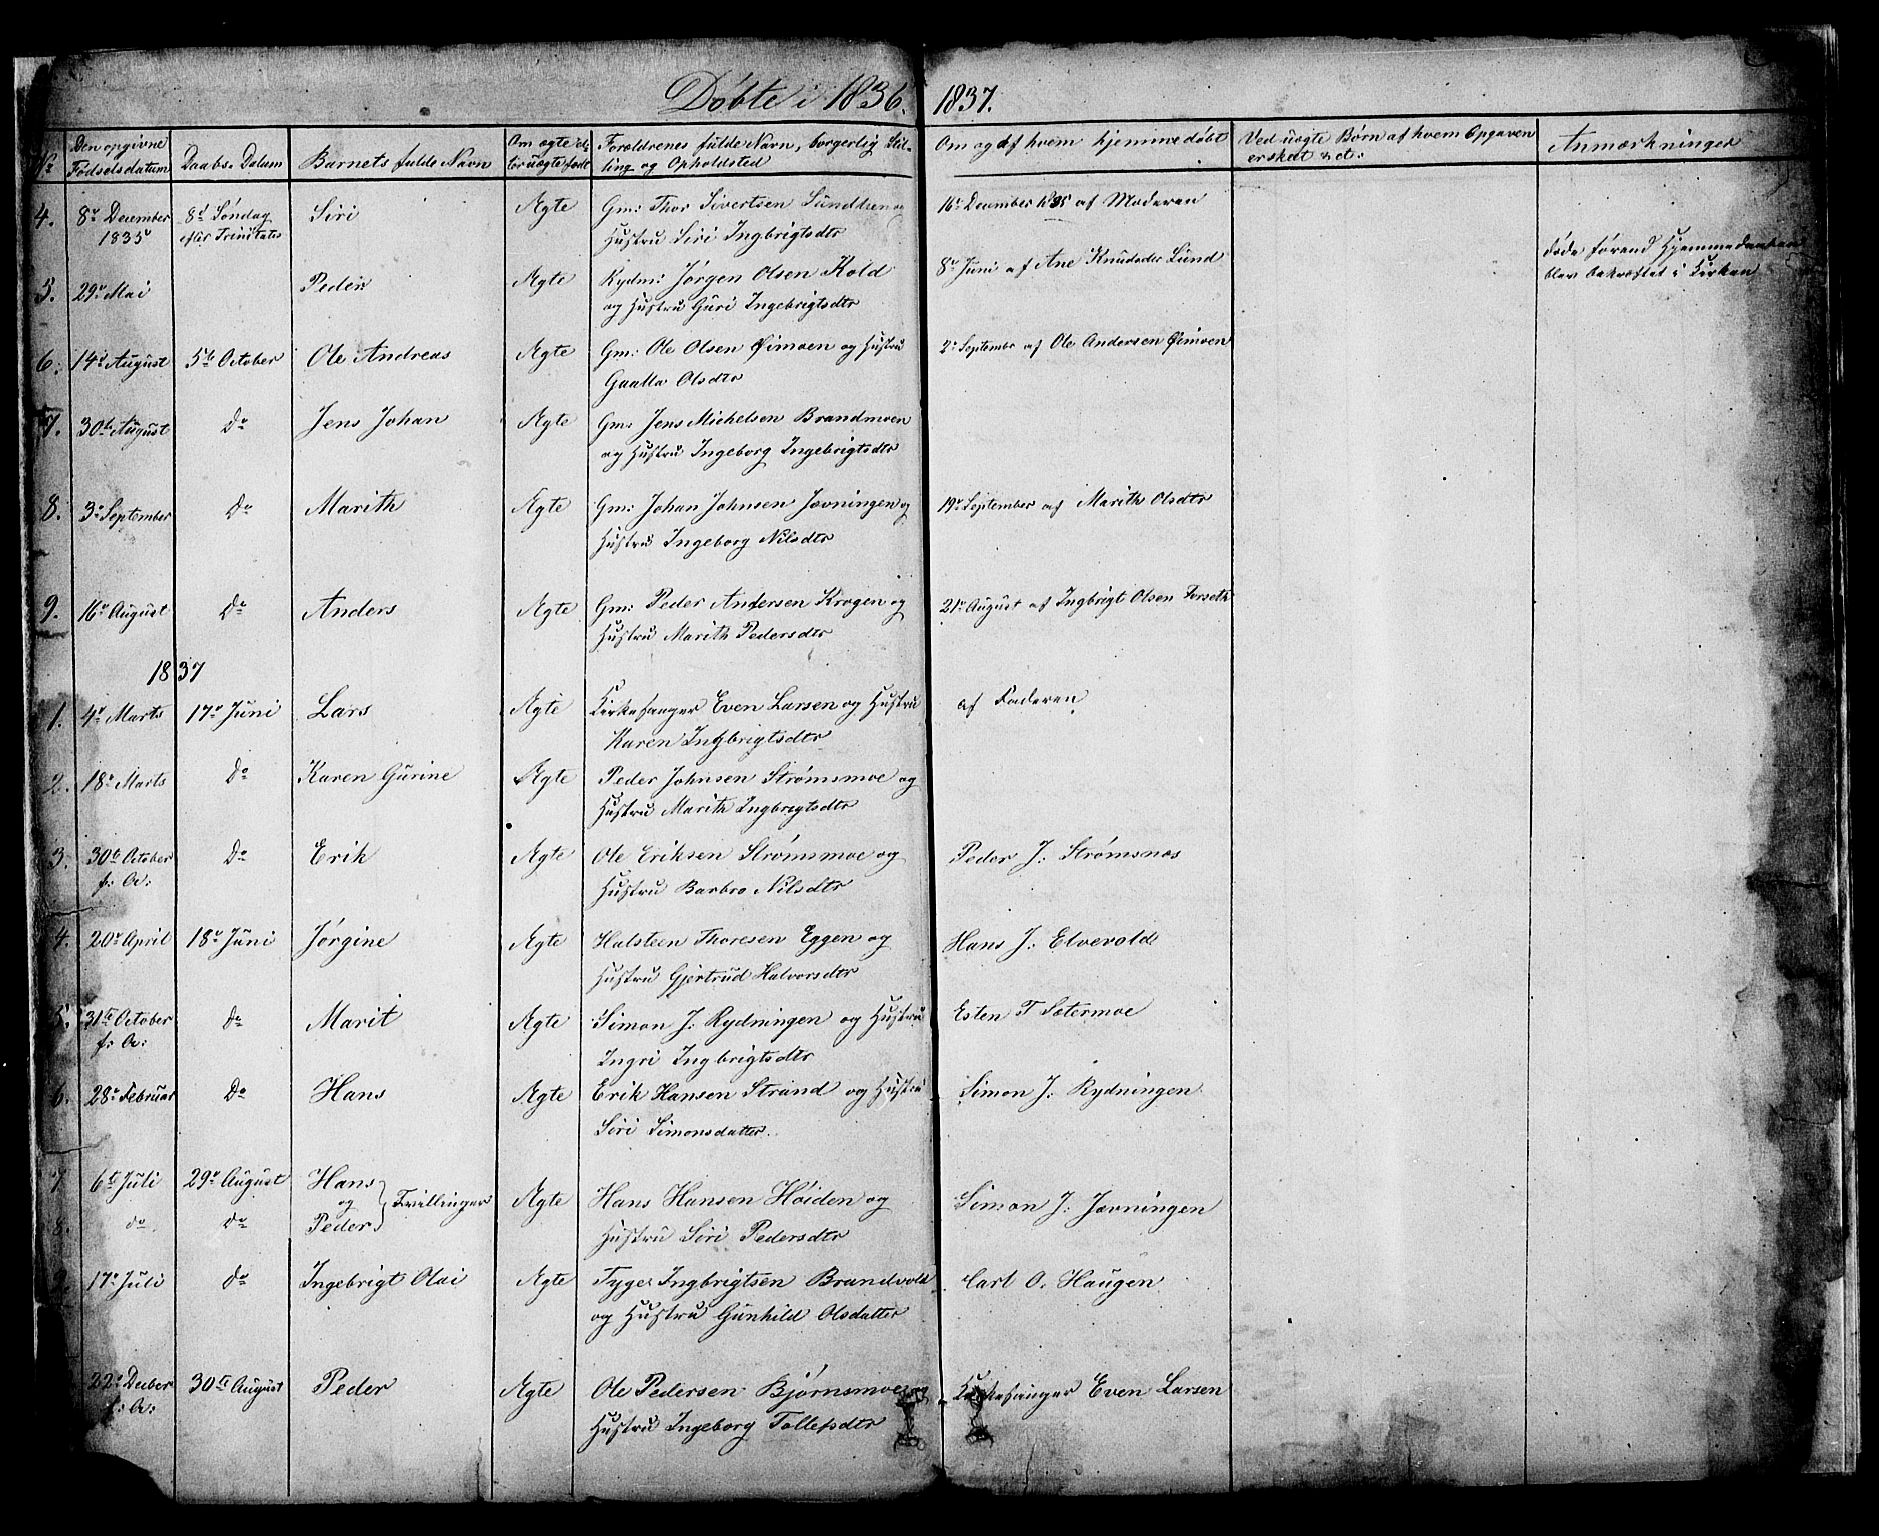 Døbte i 1836. 1837.
No Den opgivne Fødselsdatum Daabs-Datum Barnets fulde Navn Om ægte eller uægte født Forældrenes fulde Navn, borgerlig Stilling og Opholdsted Om og af hvem hjemmedøbt Ved uægte Børn af hvem Opgaven er skeet &ct: Anmærkninger
4. 8de December 8d Søndag Siri Ægte Gm: Thor Sivertsen 16de December 1835 af Moderen
1835 efter Trinitatis Hustru Siri Ingbrigtsdtr
5. 29de Mai Peder Ægte Rydm: Jørgen Olsen Kold 8de Juni af Ane Knudsdtr Lund døde førend Hjemmedaaben
og Hustru Guri Ingebrigtsdtr blev bekræftet i Kirken
6. 14de August 5te October Ole Andreas Ægte Gm: Ole Olsen Øimoen og Hustru 2de Septembr af Ole Andersen Øimoen
Olsdtr
7. 30te August Do Jens Johan Ægte Gm: Jens Michelsen Brandmoen
og Hustru Ingeborg Ingebrigtsdtr
8. 3de September Do Marith Ægte Gm: Johan Johnsen Jævningen og 19de September af Marith Olsdtr
Hustru Ingeborg Nilsdtr
9. 16de August Do Anders Ægte Gm: Peder Andersen Krogen og 21de August af Ingbrigt Olsen Forseth
Hustru Marith Pedersdtr
1837
1. 4de Marts 17de Juni Lars Ægte Kirkesanger Even Larsen og Hustru af Faderen
Karen Ingbrigtsdtr
2. 18de Marts Do Karen Gurine Ægte Peder Johnsen Strømsmoe og
Hustru Marith Ingbrigtsdtr
3. 30te October Do Erik Ægte Ole Eriksen Strømsmoe og Peder J: Strømsnæs
f: A: Hustru Barbro Nilsdtr
4. 20de April 18de Juni Jørgine Ægte Halsteen Thoresen Eggen og Hans J: Elvevold
Hustru Gjertrud Halvorsdtr
5. 31te October Do Marit Ægte Simon J: Rydningen og Hustru Esten T Sætermoe
f: A: Ingri Ingbrigtsdtr
6. 28de Februar Do Hans Ægte Erik Hansen Strand og Hustru Simon J: Rydningen
Siri Simonsdatter.
7 6te Juli 29de August Hans
og Tvillinger Ægte Hans Hansen Høiden og Simon J: Jævningen
8. do do Peder Hustru Siri Pedersdtr
9. 17de Juli do Ingebrigt Olai Ægte Tyger Ingbrigtsen Brandvold Carl O. Haugen
og Hustru Gunhild Olsdatter
22de Decber 30te August Peder Ægte Ole Pedersen Bjørnsmoe og Kirkesanger Even Larsen
f: A: Hustru Ingeborg Tollefsdtr